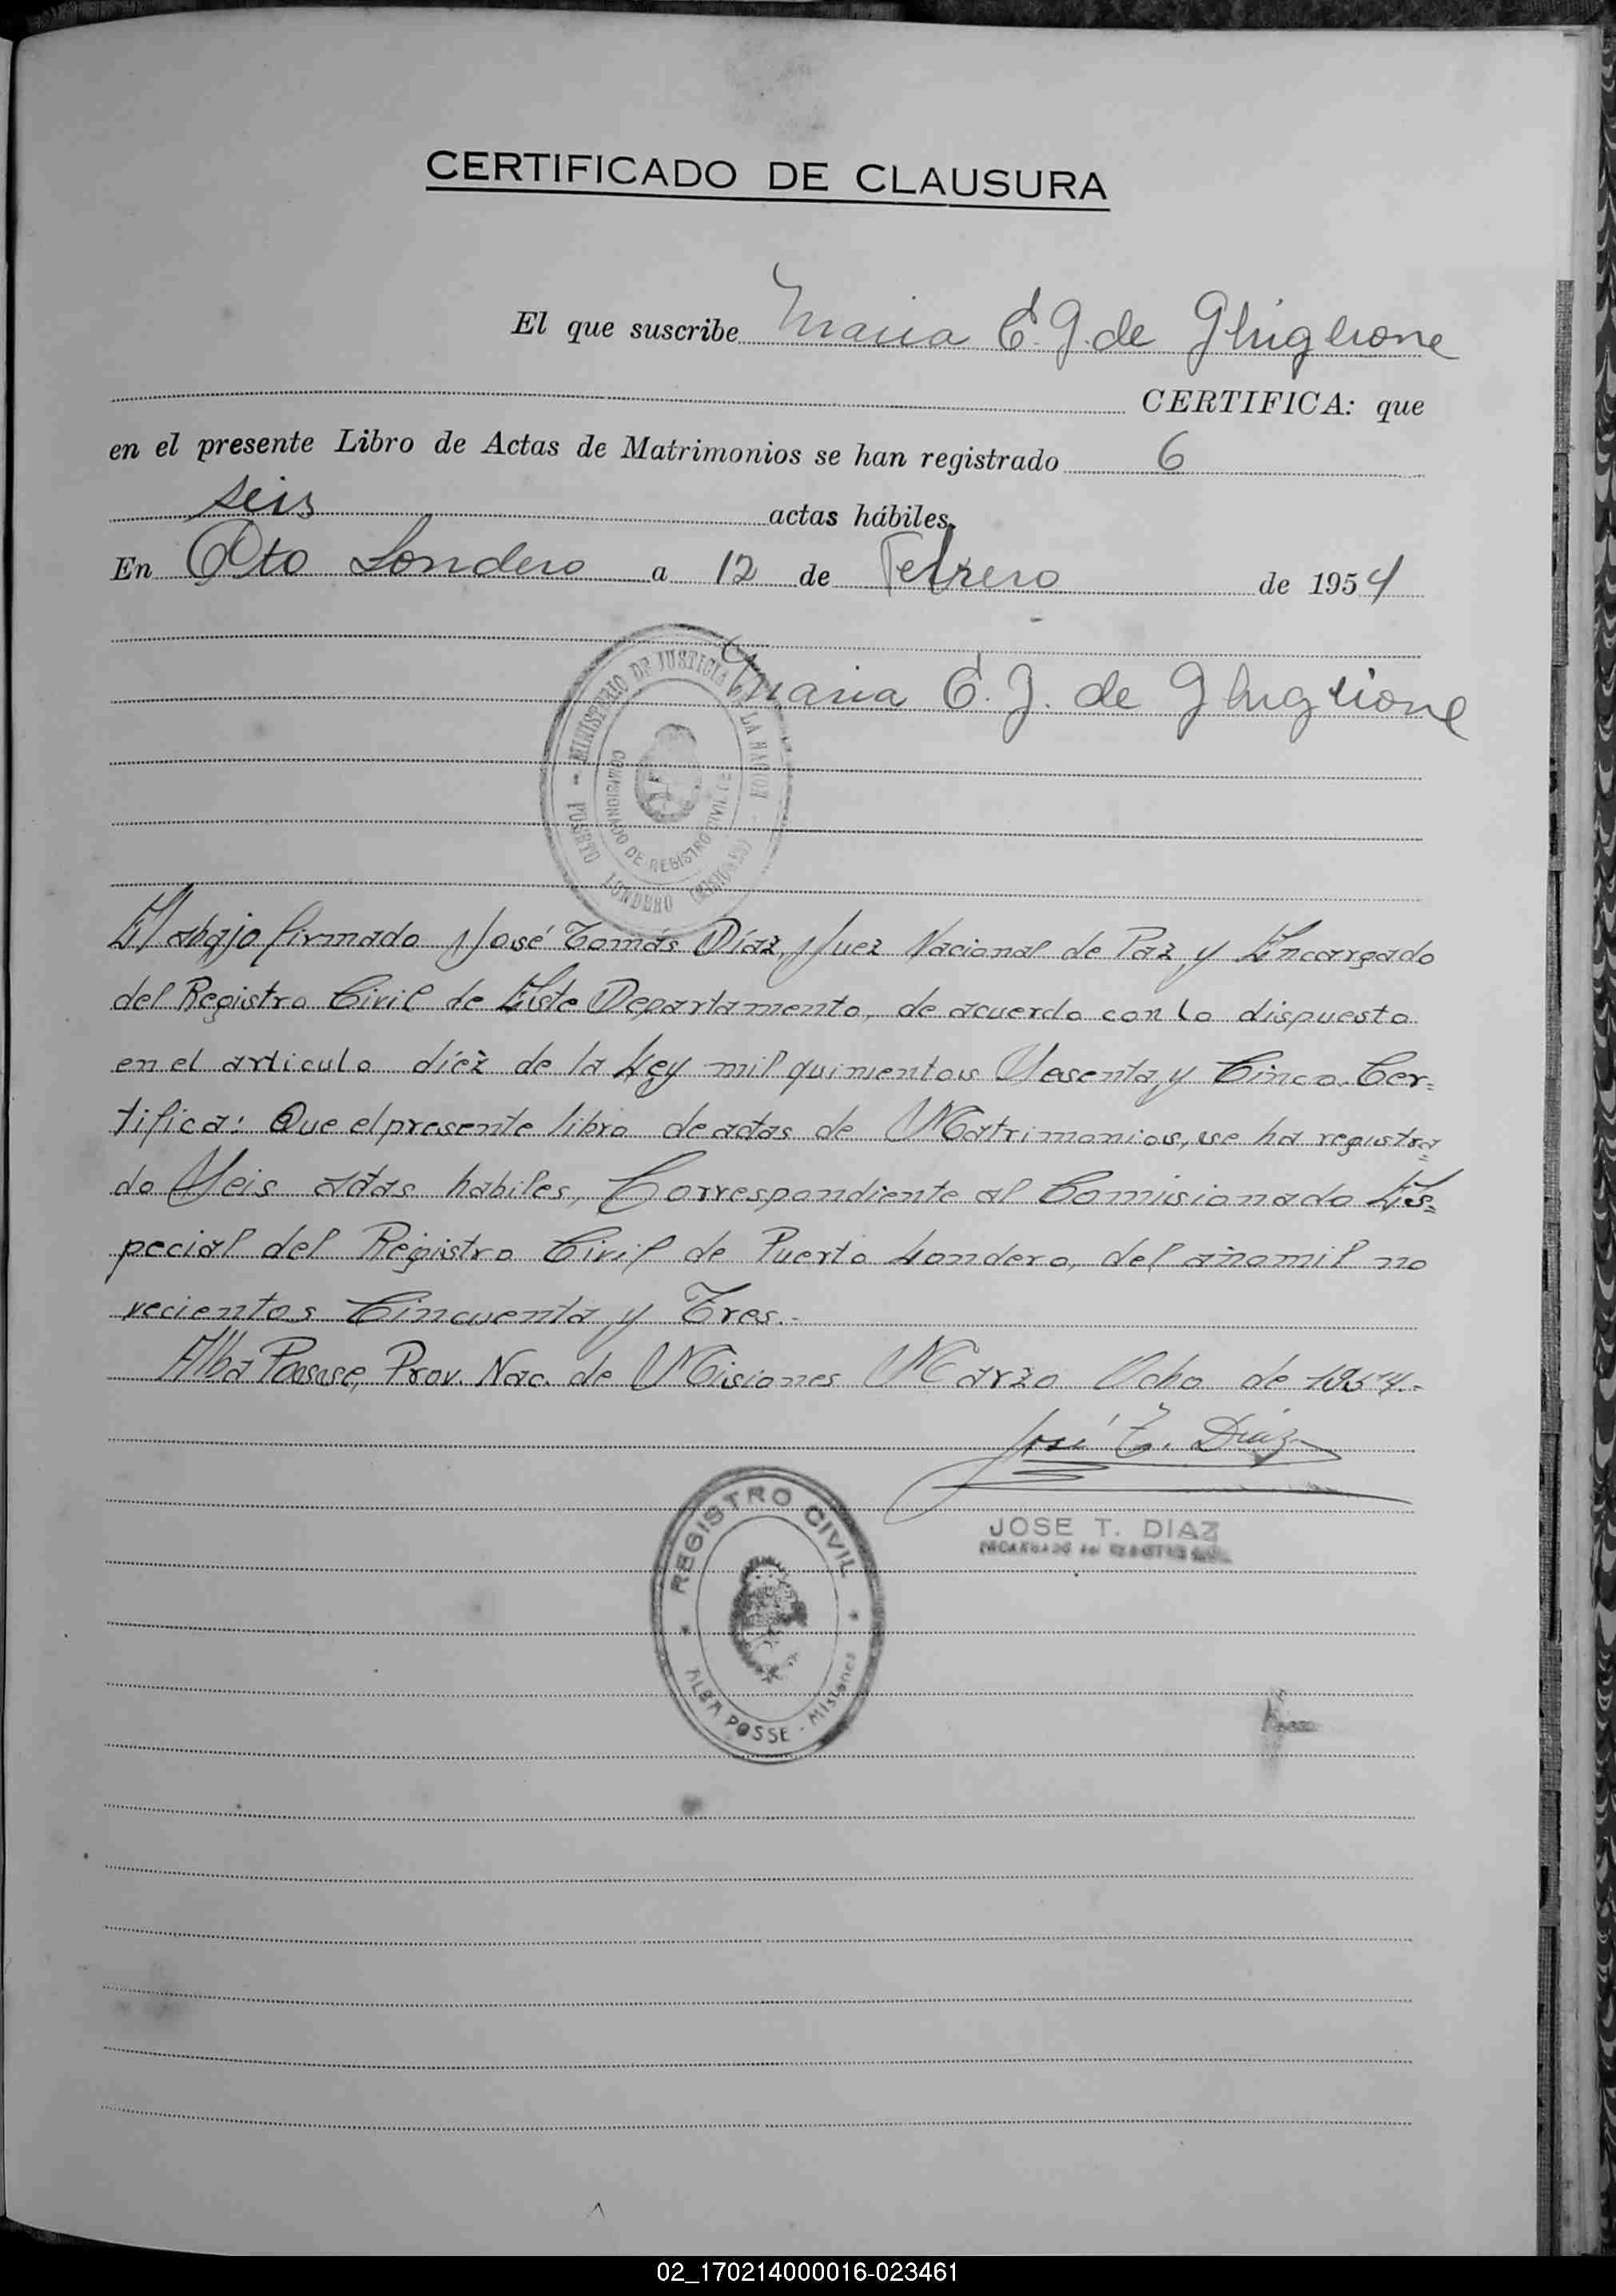 CERTIFICADO DE CLAUSURA
El que suscribe Maria E. G. de Ghiglione
CERTIFICA: que
en el presente Libro de Actas de Matrimonios se han registrado 6
seis actas hábiles.
En Pto Londero a 12 de Febrero de 1954
Maria E. G. de Ghiglione
MINISTERIO DE JUSTICIA DE LA NACION
PUERTO LONDERO (MISIONES)
COMISIONADO DE REGISTRO CIVIL DE
El abajo firmado José Tomás Díaz, Juez Nacional de Paz y Encargado
del Registro Civil de Este Departamento, de acuerdo con lo dispuesto
en el articulo diéz de la Ley mil quinientos Sesenta y Cinco. Cer=
tifica: Que el presente libro de actas de Matrimonios, se ha registra=
do Seis actas habiles, Correspondiente al Comisionado Es=
pecial del Registro Civil de Puerto Londero, del año mil no
vecientos Cincuenta y Tres.-
Alba Possse, Prov. Nac. de Misiones Marzo Ocho de 1954.-
José T. Díaz
JOSE T. DIAZ
ENCARGADO DEL REGISTRO CIVIL
REGISTRO CIVIL
ALBA POSSE - Misiones
02_170214000016-023461